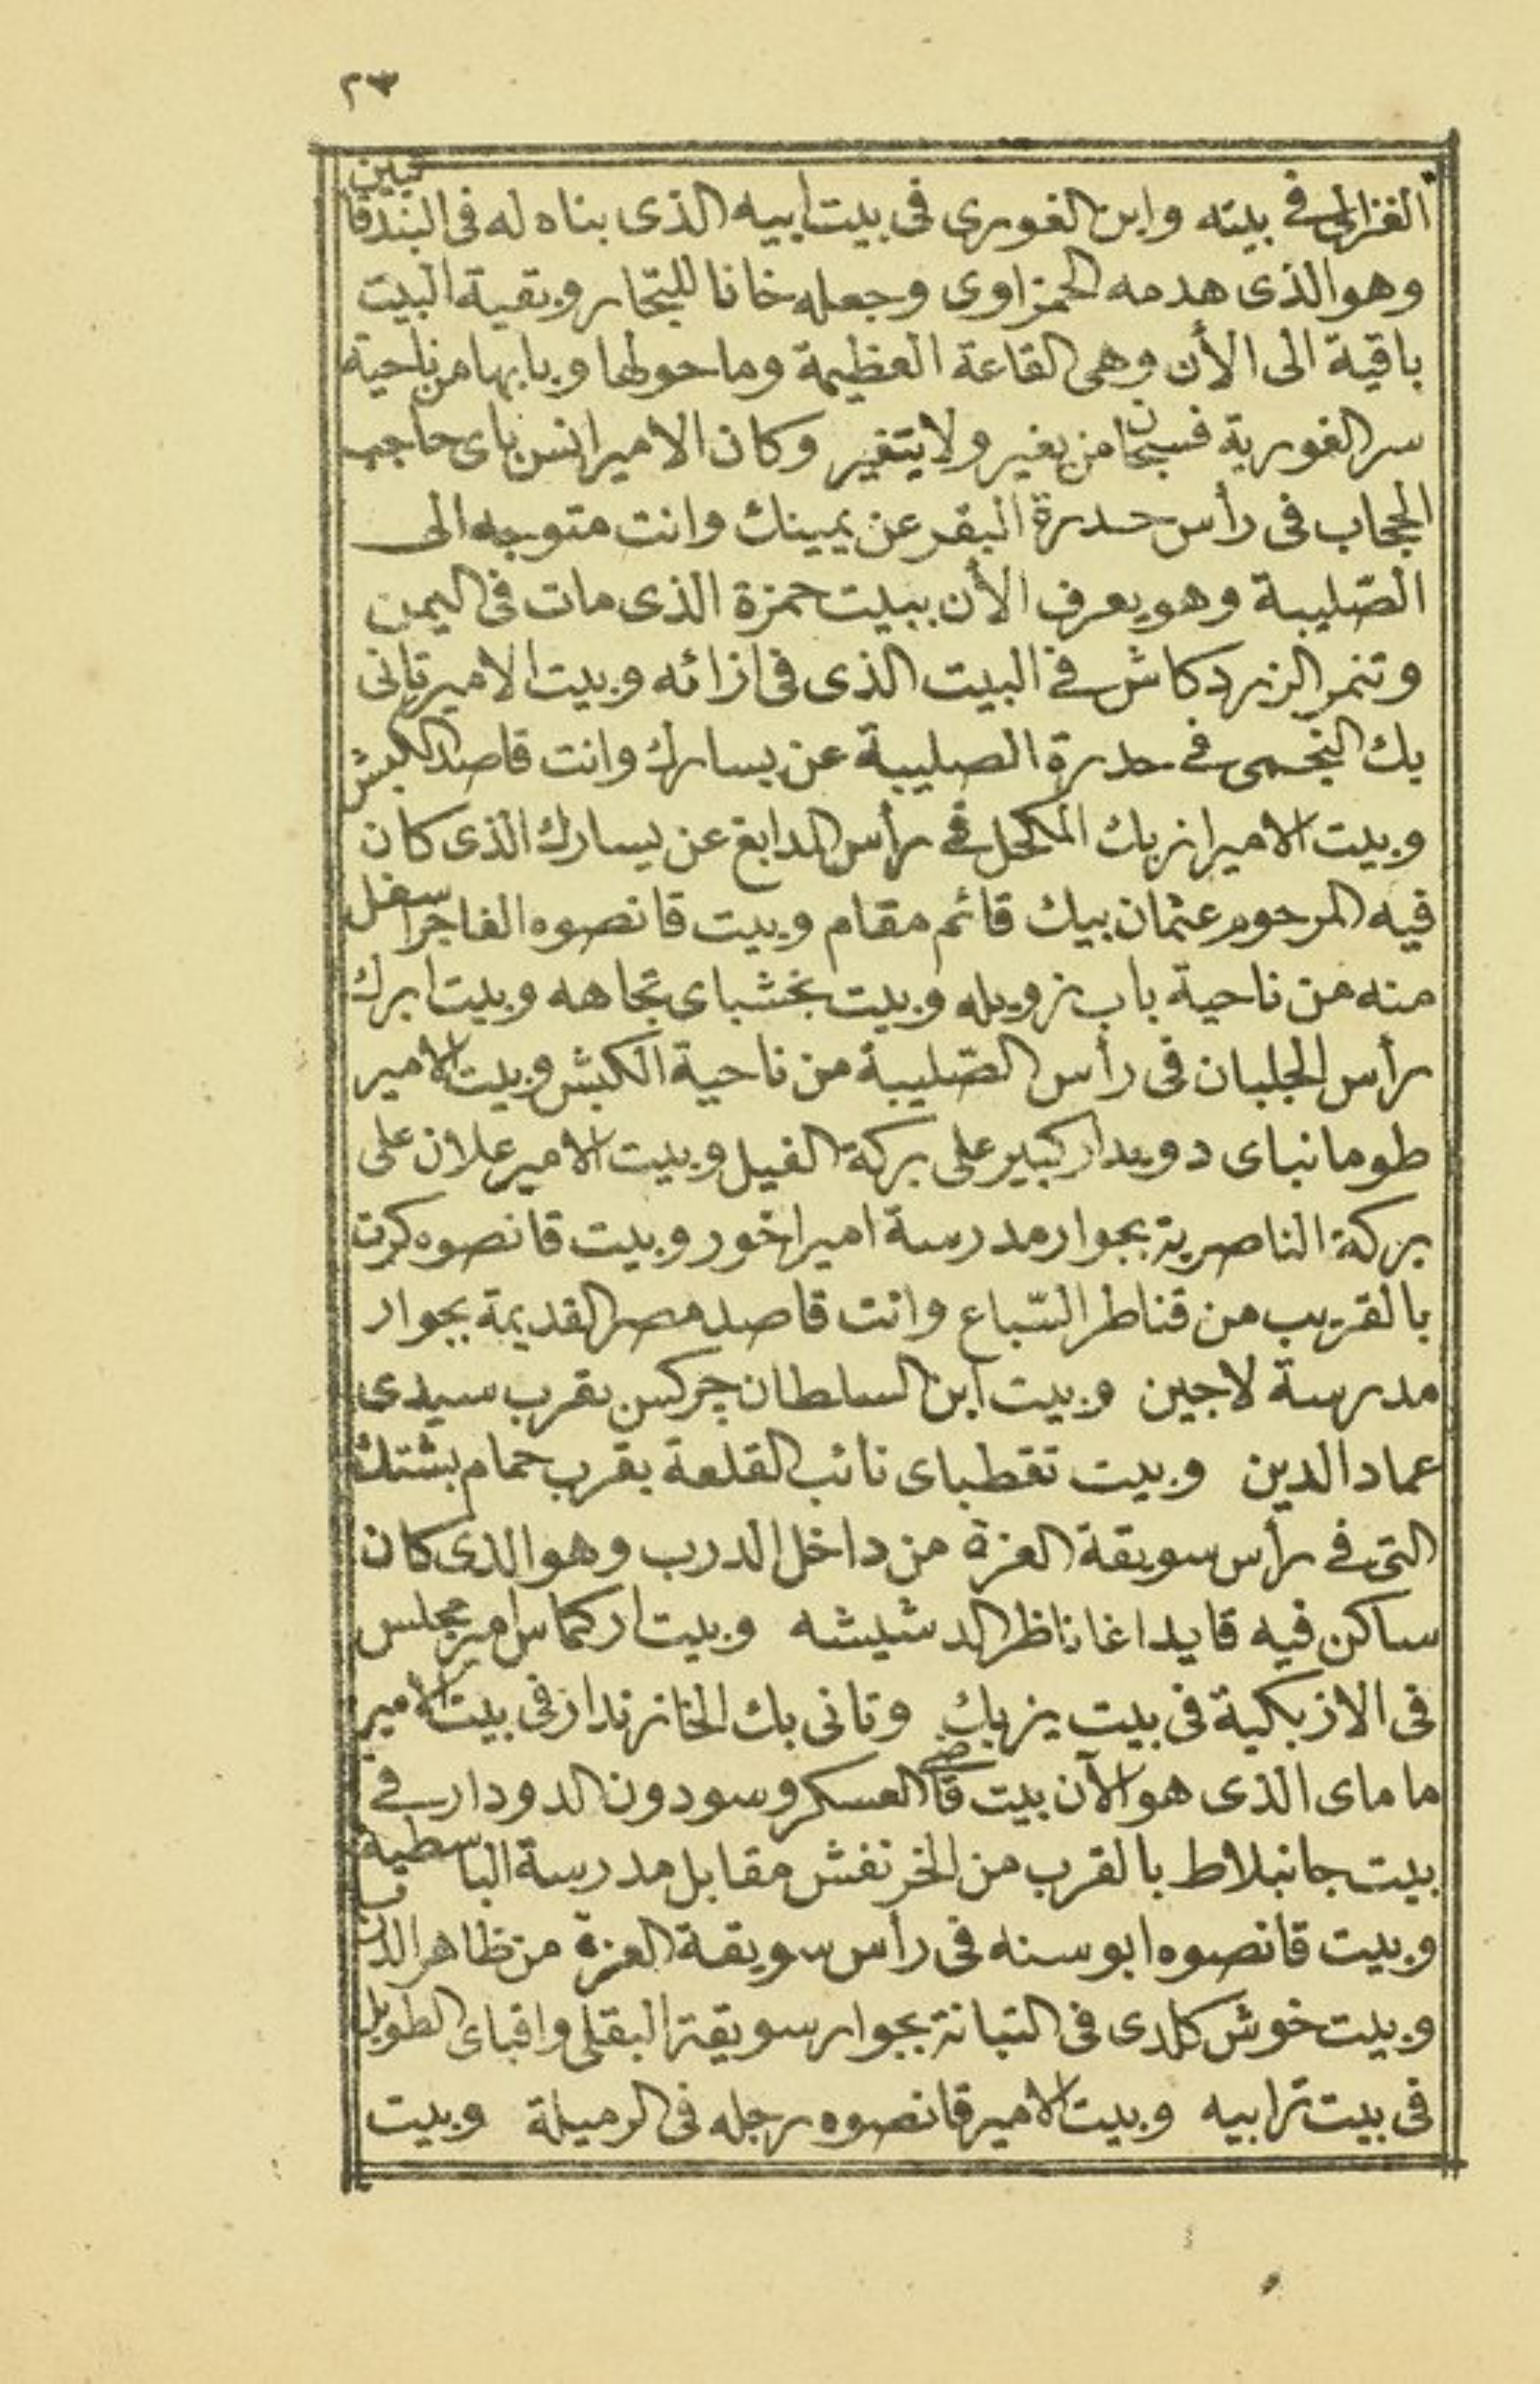 ٢٣
الغزالى فى بيته وابن الغورى فى بيت ابيه الذى بناه له فى البندقانيين
وهو الذى هدمه الحمزاوى وجعله خانا للتجار وبقية البيت
باقية الى الأن وهى القاعة العظيمة وما حولها وبابها من ناحية
سر الغورية فسبحان من يغير ولا يتغير وكان الامير انس باى حاجب
الحجاب فى رأس حدرة البقر عن يمينك وانت متوجه الى
الصّليبة وهو يعرف الأن ببيت حمزة الذى مات فى اليمن
وتنمر الزردكاش فى البيت الذى فى ازائه وبيت الامير تانى
بك النجمى فى حدرة الصليبة عن يسارك وانت قاصد الكبش
وبيت الامير ازبك المكحل فى رأس المدابغ عن يسارك الذى كان
فيه المرحوم عثمان بيك قائم مقام وبيت قانصوه الفاجر اسفل
منه من ناحية باب زويله وبيت بخشباى تجاهه وبيت ابرك
رأس الجلبان فى رأس الصّليبة من ناحية الكبش وبيت الامير
طومانباى دويدار كبير على بركة الفيل وبيت الامير علان على
بركة الناصرية بجوار مدرسة اميراخور وبيت قانصوه كرت
بالقريب من قناطر السّباع وانت قاصد مصر القديمة بجوار
مدرسة لاجين وبيت ابن السلطان چركس بقرب سيدى
عماد الدين وبيت تقطباى نائب القلعة بقرب حمام بشتك
التى فى رأس سويقة العزة من داخل الدرب وهو الذى كان
ساكن فيه قايد اغا ناظر الدشيشه وبيت اركماس امير مجلس
فى الازبكية فى بيت يزبك وتانى بك الخازندار فى بيت الامير
ماماى الذى هو الآن بيت قاضى العسكر وسودون الدودار فى
بيت جانبلاط بالقرب من الخرنفش مقابل مدرسة الباسطية
وبيت قانصوه ابو سنه فى رأس سويقة العزة من ظاهر الدرب
وبيت خوش كلدى فى التبانة بجوار سويقة البقلى واقباى الطويل
فى بيت ترابيه وبيت الامير قانصوه رجله فى الرميلة وبيت